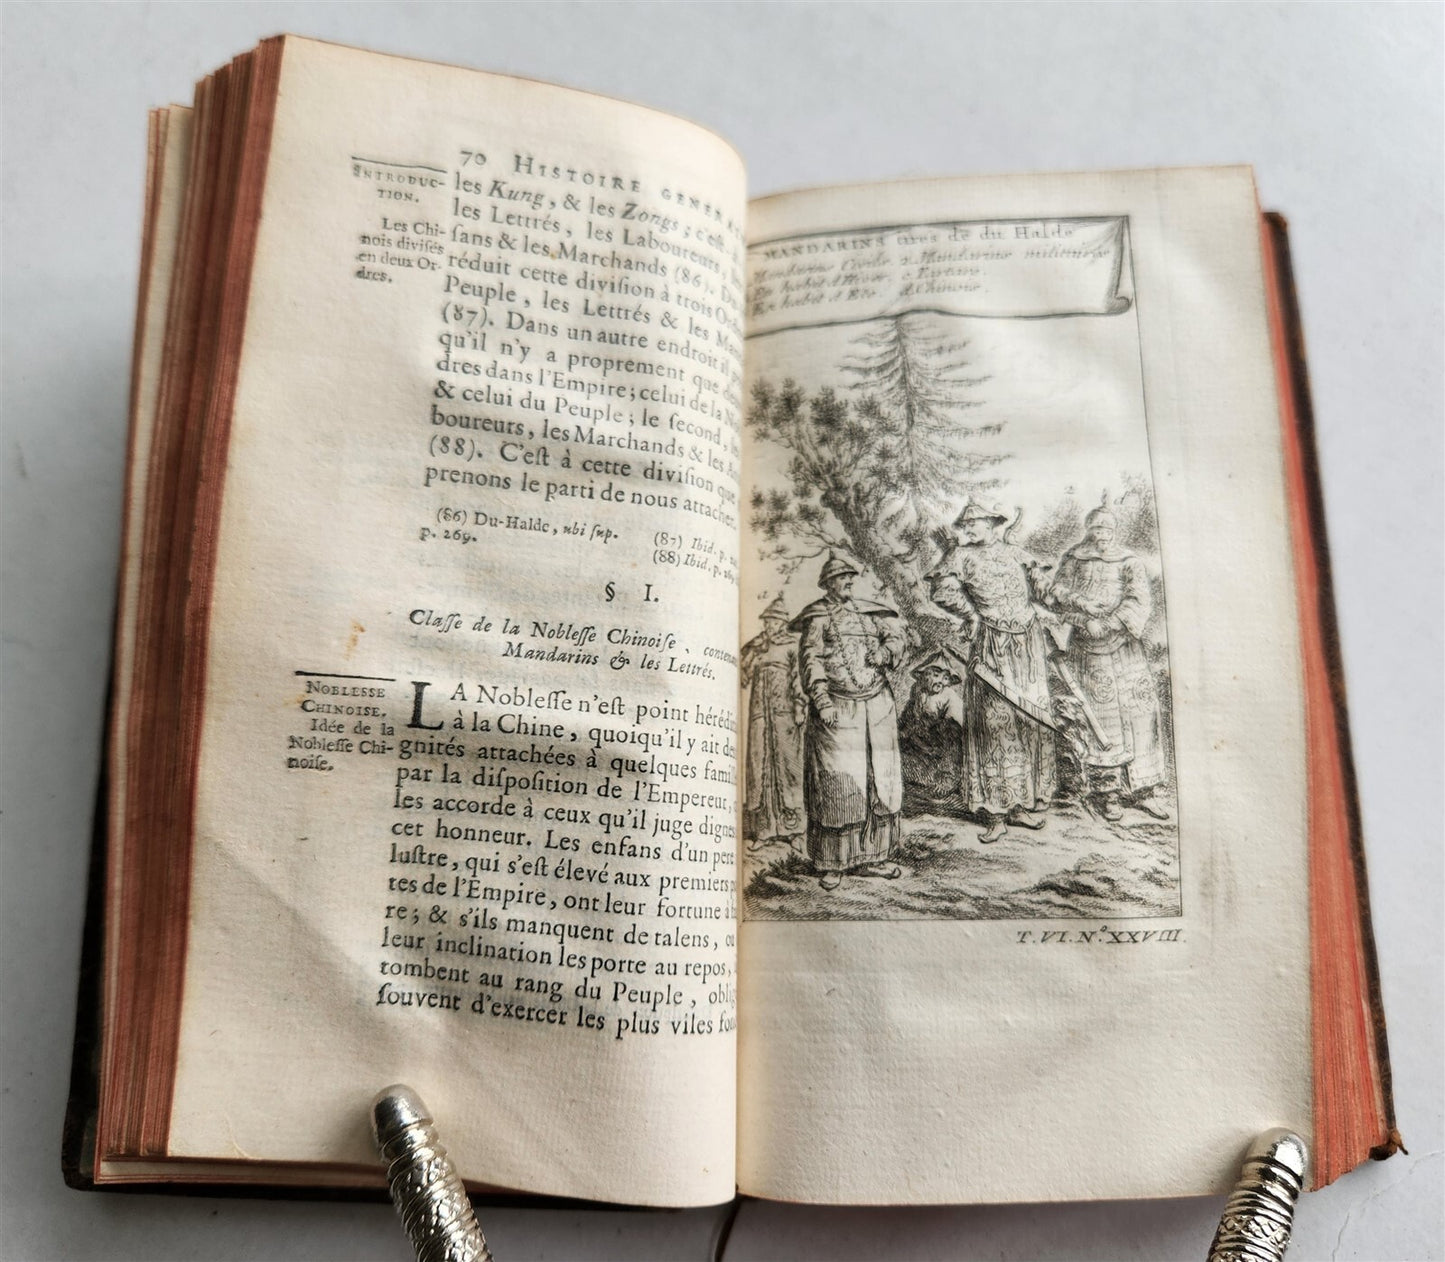 70 HISTOIRE GENERA
INTRODUC-
TION.
les Kung, & les Zongs; c'est
les Lettrés, les Laboureurs,
Les Chi-
nois divisés
en deux Or-
dres.
ſans & les Marchands (86).
réduit cette diviſion à trois
Peuple, les Lettrés & les
(87). Dans un autre endroit il
qu'il n'y a proprement que
dres dans l'Empire; celui de la
& celui du Peuple; le ſecond,
boureurs, les Marchands & les
(88). C'eſt à cette diviſion que
prenons le parti de nous attacher.
(86) Du-Halde, ubi ſup.
p. 269.
(87) Ibid. p.
(88) Ibid. p.
§ I.
Claſſe de la Nobleſſe Chinoiſe, contenant
Mandarins & les Lettrés.
NOBLESSE
CHINOISE.
Idée de la
Nobleſſe Chi-
noiſe.
LA Nobleſſe n'eſt point hérédi
à la Chine, quoiqu'il y ait
gnités attachées à quelques famil
par la diſpoſition de l'Empereur,
les accorde à ceux qu'il juge dignes
cet honneur. Les enfans d'un pere
luſtre, qui s'eſt élevé aux premiers
tes de l'Empire, ont leur fortune à
re; & s'ils manquent de talens,
leur inclination les porte au repos,
tombent au rang du Peuple, oblig
ſouvent d'exercer les plus viles
MANDARINS tirés de du Halde
Mandarins Civils. 2. Mandarins militaires
En habit d'Hiver. c. Tartare.
En habit d'Eté. d. Chinois.
2
a
T. VI. N.º XXVIII.